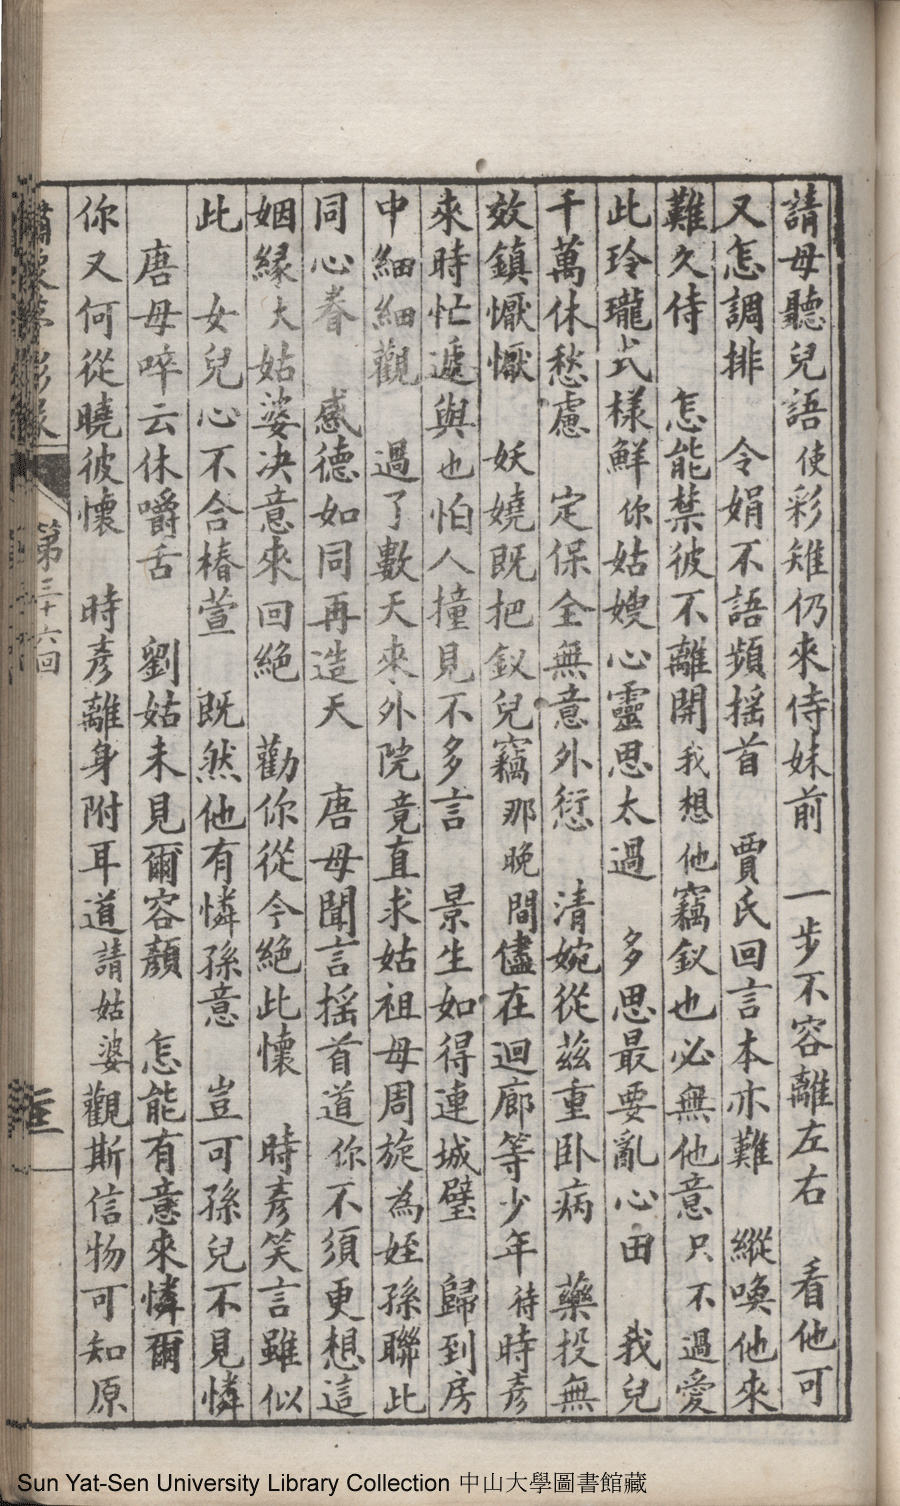 請母聽兒語使彩雉仍來侍妹前　一步不容離左右　看他可
又怎調排　令娟不語頻搖首　賈氏回言本亦難　縱喚他來
難久侍　怎能禁彼不離開我想他竊釵也必無他意只不過愛
此玲瓏式樣鮮你姑嫂心靈思太過　多思最要亂心田　我兒
千萬休愁慮　定保全無意外愆　清婉從茲重臥病　藥投無
效鎮懨懨　妖嬈既把釵兒竊那晚間儘在迴廊等少年待時彥
來時忙遞與也怕人撞見不多言　景生如得連城璧　歸到房
中細細觀　過了數天來外院竟直求姑祖母周旋為姪孫聯此
同心眷　感德如同再造天　唐母聞言搖首道你不須更想這
姻緣大姑婆决意來回絕　勸你從今絕此懷　時彥笑言雖似
此　女兒心不合椿萱　既然他有憐孫意　豈可孫兒不見憐
唐母啐云休嚼舌　劉姑未見爾容顏　怎能有意來憐爾
你又何從曉彼懷　時彥離身附耳道請姑婆觀斯信物可知原
第三十六回
Sun Yat-Sen University Library Collection 中山大學圖書館藏